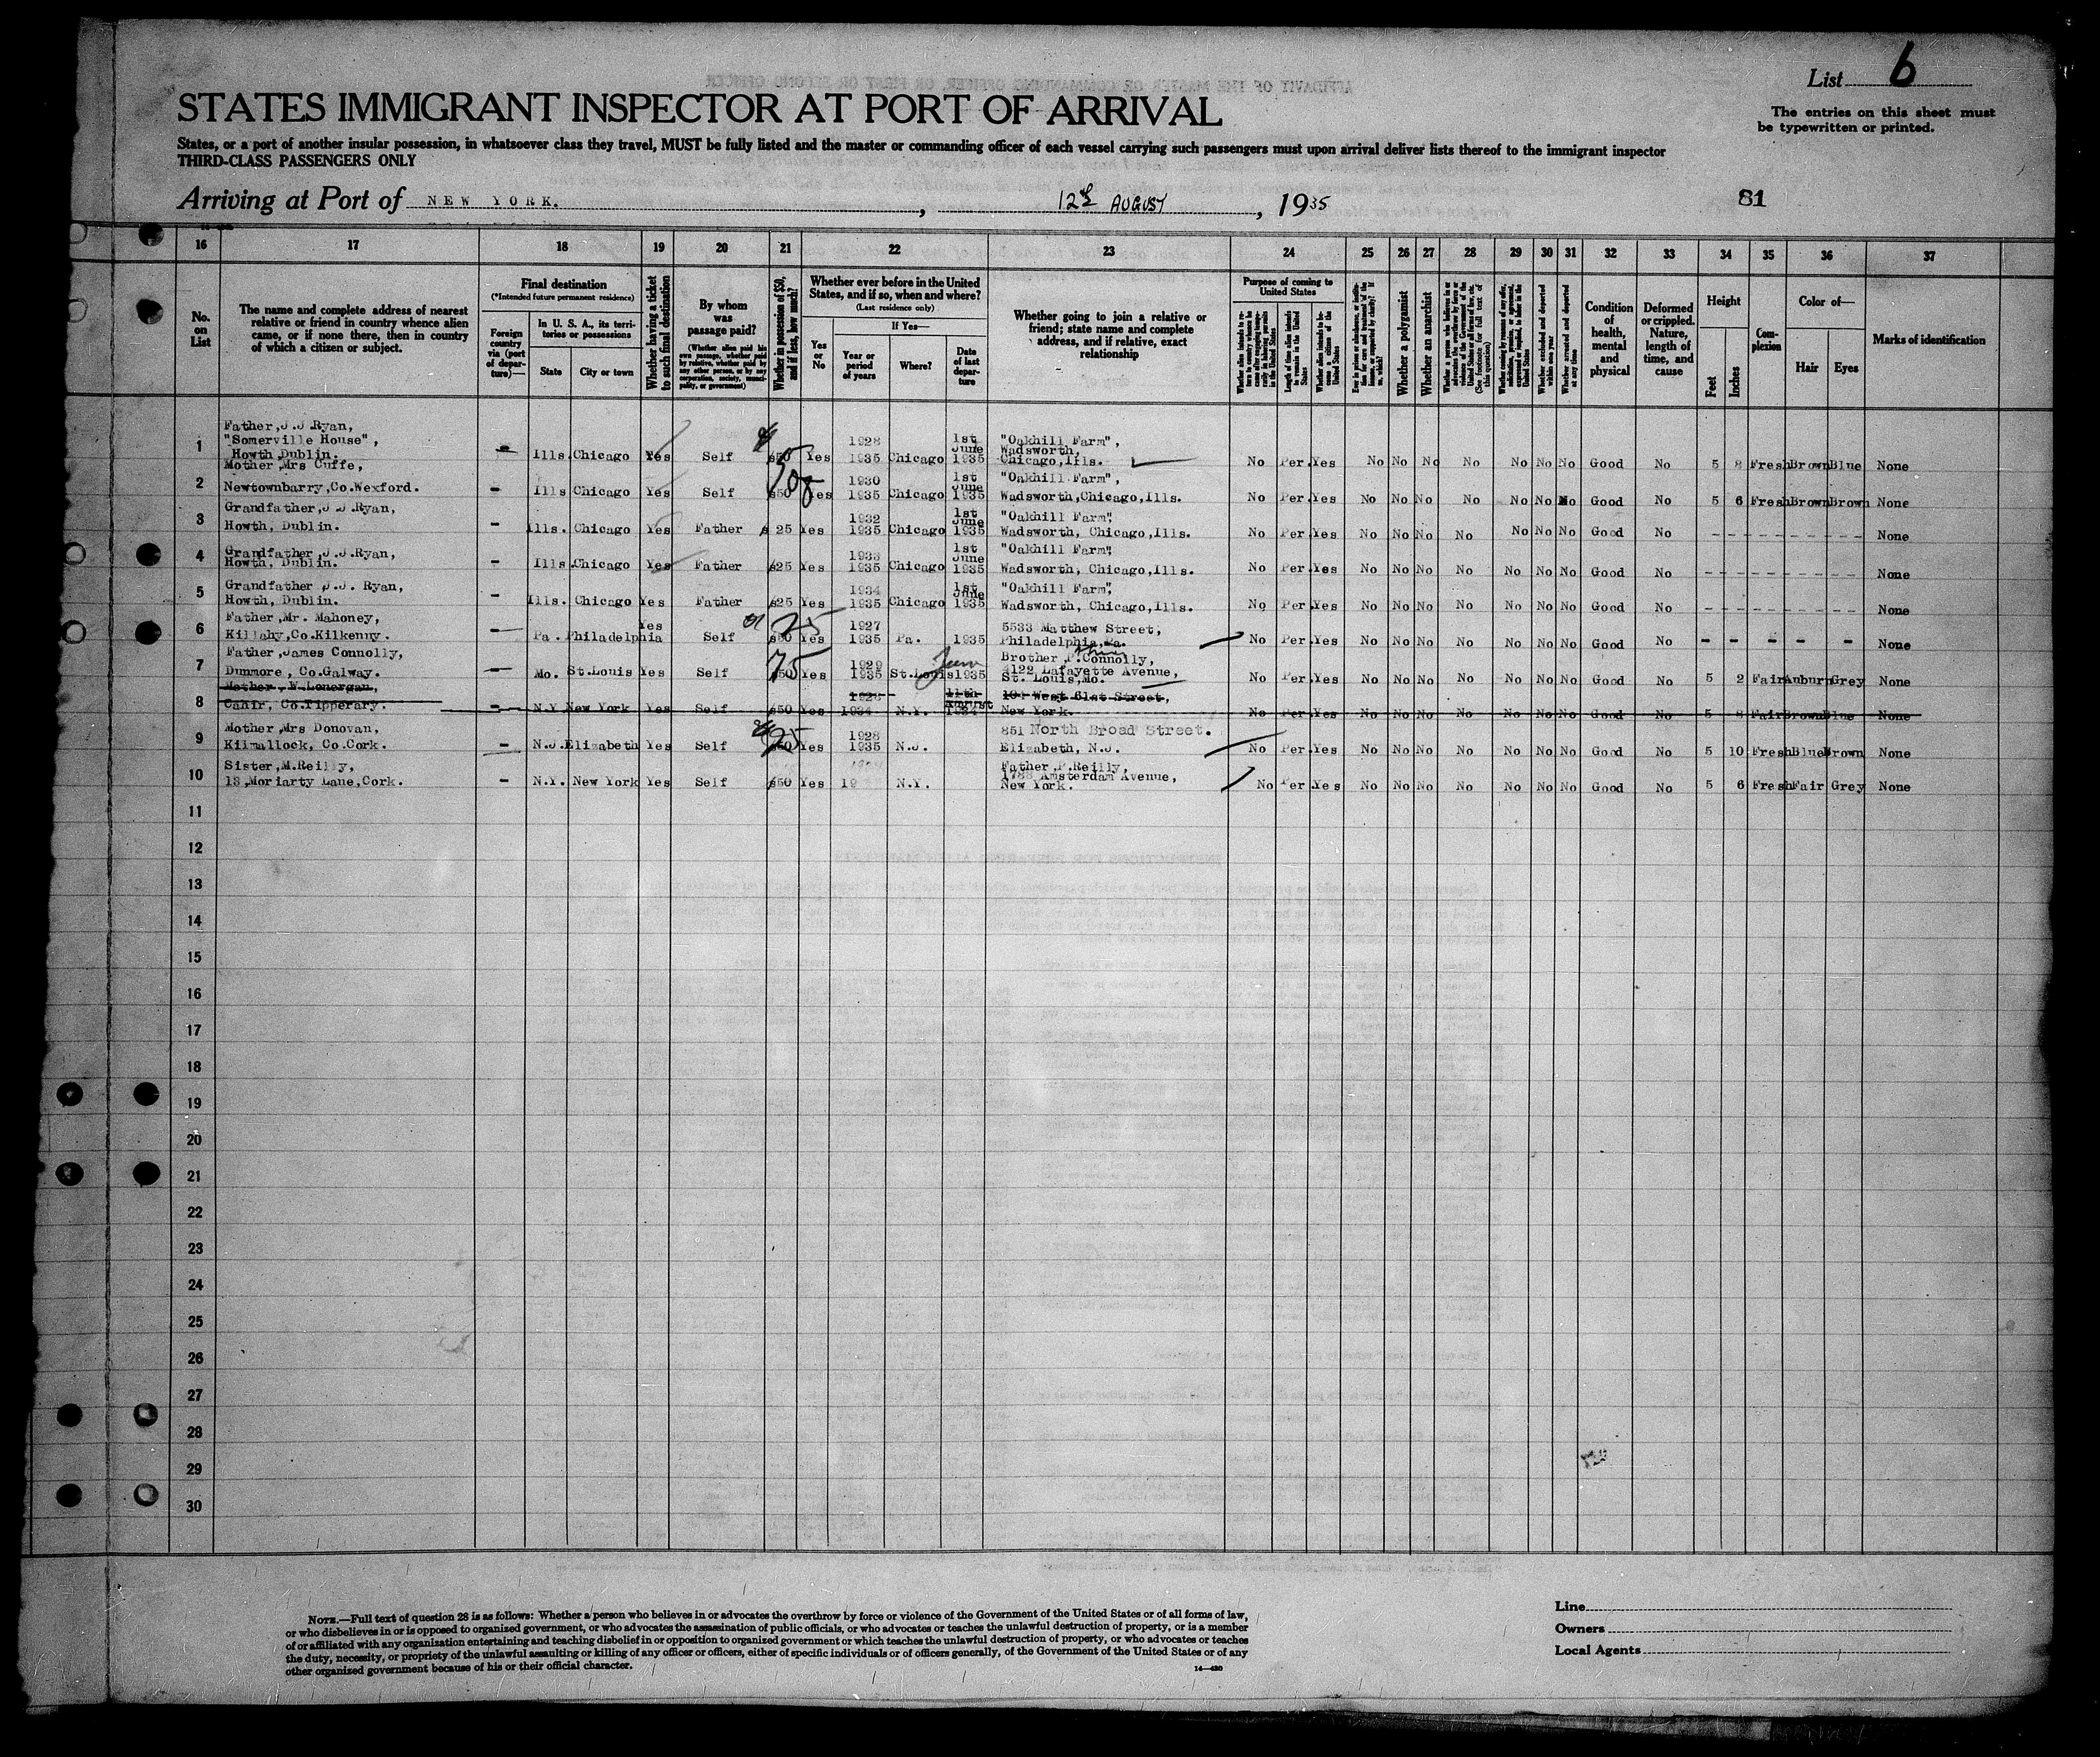 List 6
STATES IMMIGRANT INSPECTOR AT PORT OF ARRIVAL
The entries on this sheet must
be typewritten or printed.
States, or a port of another insular possession, in whatsoever class they travel, MUST be fully listed and the master or commanding officer of each vessel carrying such passengers must upon arrival deliver lists thereof to the immigrant inspector
THIRD-CLASS PASSENGERS ONLY
Arriving at Port of NEW YORK. , 12th AUGUST , 1935
81
16 17 18 19 20 21 22 23 24 25 26 27 28 29 30 31 32 33 34 35 36 37
No. on List
The name and complete address of nearest relative or friend in country whence alien came, or if none there, then in country of which a citizen or subject.
Final destination
(*Intended future permanent residence)
Foreign country via (port of departure)—
In U. S. A., its territories or possessions
State
City or town
Whether having a ticket to such final destination
By whom was passage paid?
(Whether alien paid his own passage, whether paid by relative, whether paid by any other person, or by any corporation, society, municipality, or government)
Whether in possession of $50, and if less, how much?
Whether ever before in the United States, and if so, when and where?
(Last residence only)
Yes or No
If Yes—
Year or period of years
Where?
Date of last departure
Whether going to join a relative or friend; state name and complete address, and if relative, exact relationship
Purpose of coming to United States
Length of time alien intends to remain in the United States
Whether alien intends to become a citizen of the United States
Whether a polygamist
Whether an anarchist
(See footnote for full text of this question)
Whether excluded and deported within one year
Whether arrested and deported at any time
Condition of health, mental and physical
Deformed or crippled. Nature, length of time, and cause
Height
Feet
Inches
Complexion
Color of—
Hair
Eyes
Marks of identification
1 Father, J.J Ryan, "Somerville House", Howth, Dublin. - Ills. Chicago Yes Self $50 Yes 1928 1935 Chicago 1st June 1935 "Oakhill Farm", Wadsworth, Chicago, Ills. No Per. Yes No No No No No No No Good No 5 8 Fresh Brown Blue None
2 Mother, Mrs Cuffe, Newtownbarry, Co. Wexford. - Ills Chicago Yes Self $50 Yes 1930 1935 Chicago 1st June 1935 "Oakhill Farm", Wadsworth, Chicago, Ills. No Per. Yes No No No No No No No Good No 5 6 Fresh Brown Brown None
3 Grandfather, J J Ryan, Howth, Dublin. - Ills. Chicago Yes Father $ 25 Yes 1932 1935 Chicago 1st June 1935 "Oakhill Farm", Wadsworth, Chicago, Ills. No Per. Yes No No No No No No No Good No - - - - - - - - None
4 Grandfather, J.J. Ryan, Howth, Dublin. - Ills. Chicago Yes Father $25 Yes 1933 1935 Chicago 1st June 1935 "Oakhill Farm", Wadsworth, Chicago, Ills. No Per. Yes No No No No No No No Good No - - - - - - - - None
5 Grandfather J.J. Ryan, Howth, Dublin. - Ills. Chicago Yes Father $25 Yes 1934 1935 Chicago 1st June 1935 "Oakhill Farm", Wadsworth, Chicago, Ills. No Per. Yes No No No No No No No Good No - - - - - - - - None
6 Father, Mr. Mahoney, Killahy, Co. Kilkenny. - Pa. Philadelphia Yes Self $50 25 Yes 1927 1935 Pa. 1935 5533 Matthew Street, Philadelphia, Pa. No Per. Yes No No No No No No No Good No - - - - - None
7 Father, James Connolly, Dunmore, Co. Galway. - Mo. St. Louis Yes Self $50 75 Yes 1929 1935 St. Louis June 1935 Brother, P. Connolly, 4122 Lafayette Avenue, St. Louis, Mo. No Per. Yes No No No No No No No Good No 5 2 Fair Auburn Grey None
8 Mother, W. Lonergan, Cahir, Co. Tipperary. - N.Y. New York Yes Self $50 Yes 1934 N.Y. 11th August 1934 West 61st Street, New York. No Per. Yes No No No No No No No Good No 5 8 Fair Brown Blue None
9 Mother, Mrs Donovan, Kilmallock, Co. Cork. - N.J. Elizabeth Yes Self $50 25 Yes 1928 1935 N.J. 851 North Broad Street. Elizabeth, N.J. No Per. Yes No No No No No No No Good No 5 10 Fresh Blue Brown None
10 Sister, M. Reilly, 13, Moriarty Lane, Cork. - N.Y. New York Yes Self $50 Yes 19 N.Y. Father, P. Reilly, 1788 Amsterdam Avenue, New York. No Per. Yes No No No No No No No Good No 5 6 Fresh Fair Grey None
11
12
13
14
15
16
17
18
19
20
21
22
23
24
25
26
27
28
29
30
NOTE.—Full text of question 28 is as follows: Whether a person who believes in or advocates the overthrow by force or violence of the Government of the United States or of all forms of law,
or who disbelieves in or is opposed to organized government, or who advocates the assassination of public officials, or who advocates or teaches the unlawful destruction of property, or is a member
of or affiliated with any organization entertaining and teaching disbelief in or opposition to organized government or which teaches the unlawful destruction of property, or who advocates or teaches
the duty, necessity, or propriety of the unlawful assaulting or killing of any officer or officers, either of specific individuals or of officers generally, of the Government of the United States or of any
other organized government because of his or their official character.
14—430
Line
Owners
Local Agents